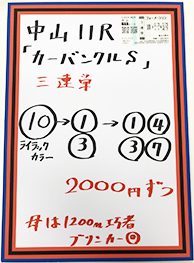 中山11R
「カーバンクルS」
三連単
⑩→①→①④
ライラックカラー
③ ③⑦
2000円ずつ
母は1200m巧者
ブリンカー◎